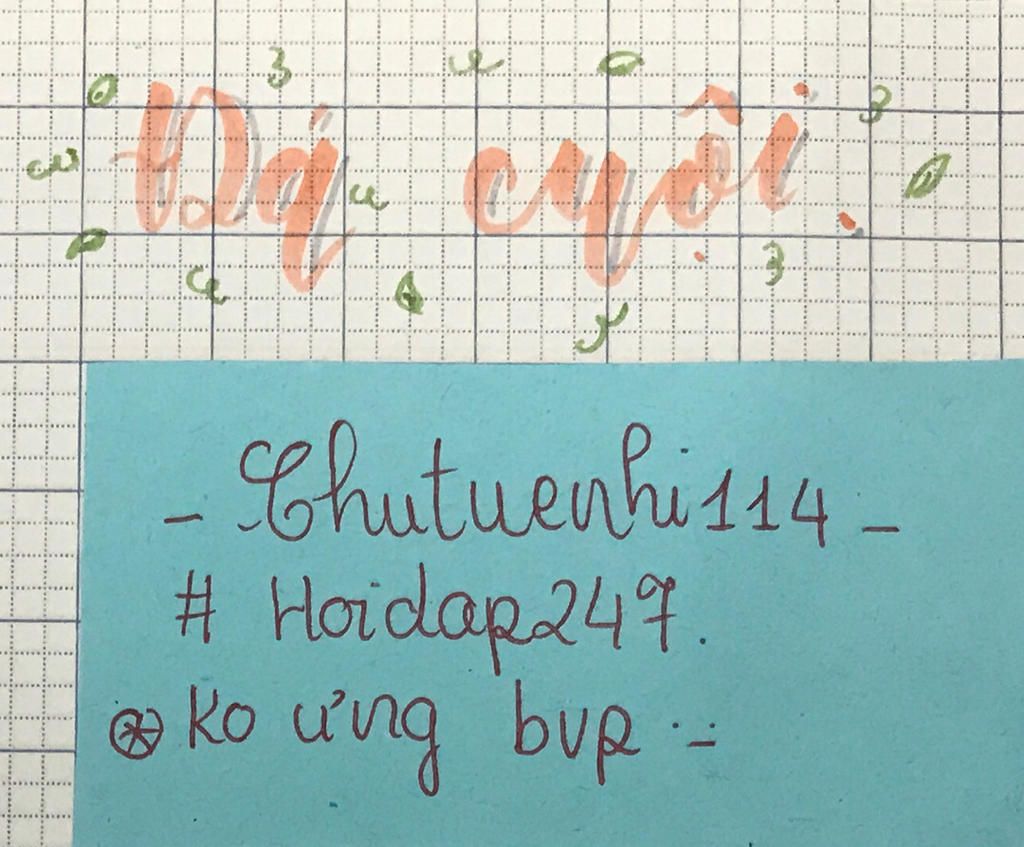 Đá cuội.
- Thutuenhi114 -
# Hoidap247.
⊛ Ko ưng bvp :-